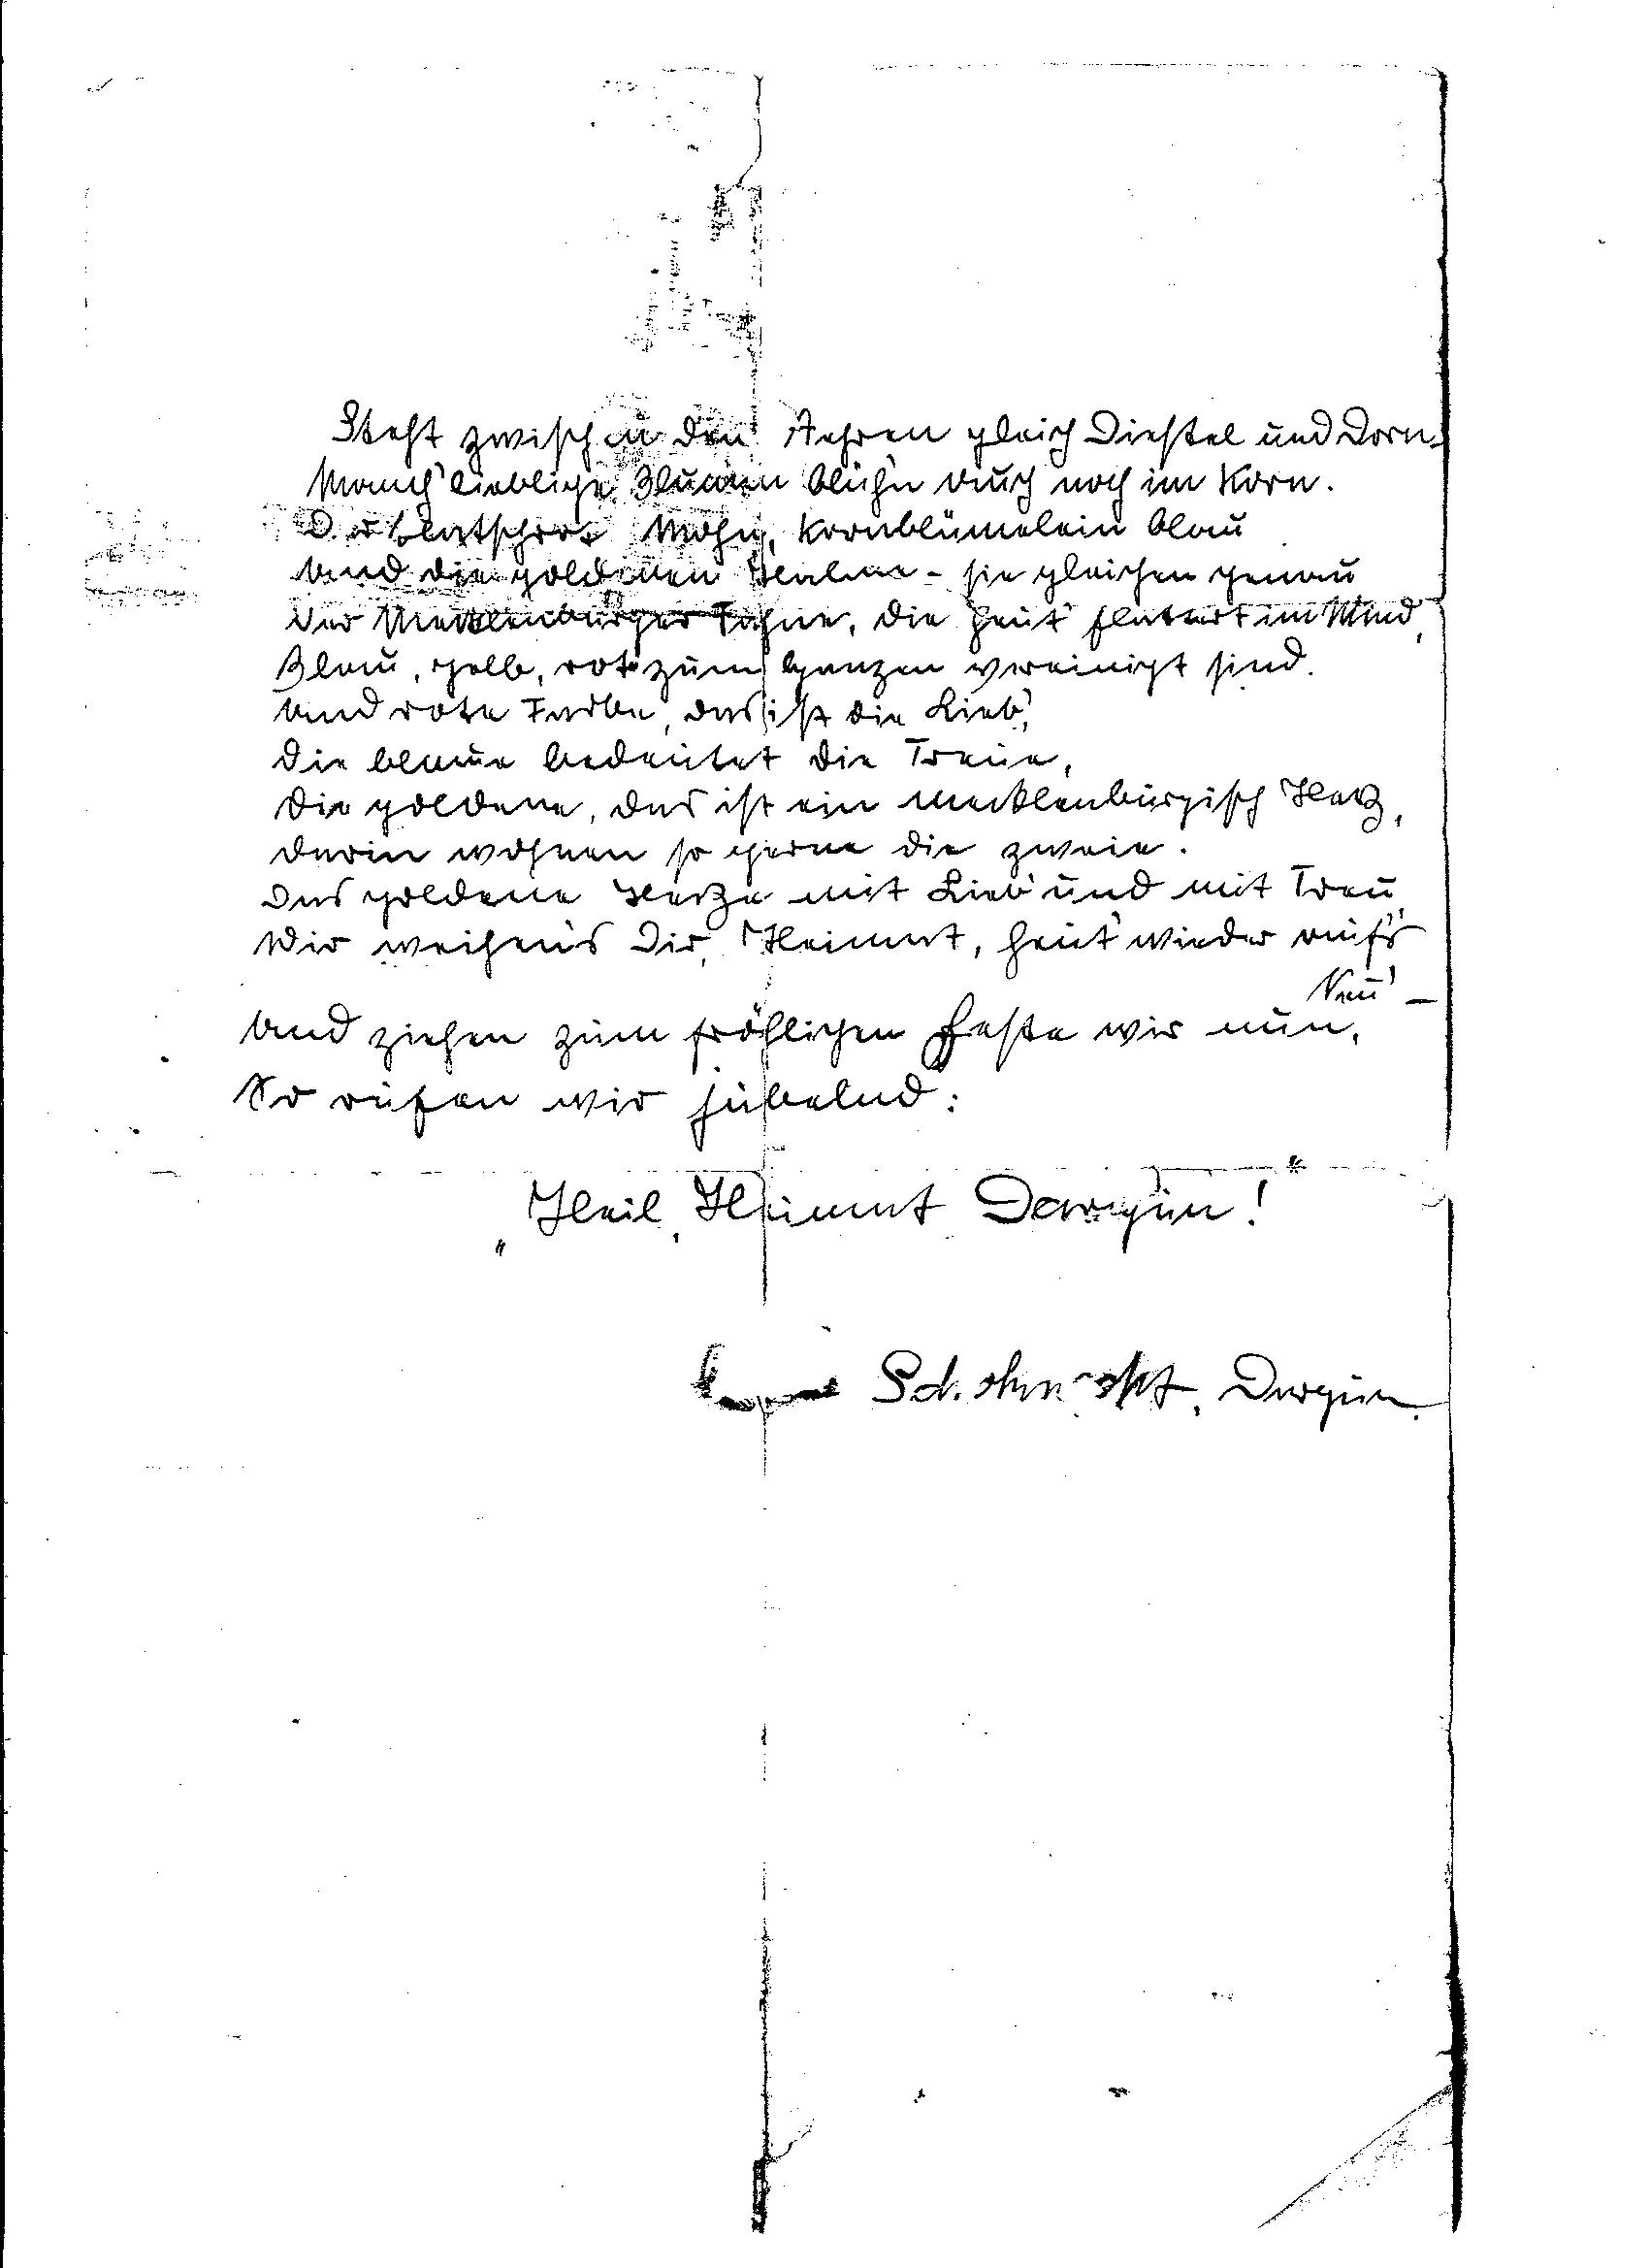 Steht zwischen den Aehren gleich Diestel und Dorn,
Manch' liebliche Blumen blüh'n auch noch im Korn.
Der klatschrote Mohn, Kornblümelein blau
Und die goldenen Halme - sie gleichen genau
Der Mecklenburger Fahne, die heut' flattert im Wind,
Blau, gelb, rot zum Ganzen vereinigt sind.
Und rote Farbe, das ist die Lieb',
Die blaue bedeutet die Treue,
Die goldene, das ist ein mecklenburgisch Herz,
Darin wohnen so gerne die zweie.
Das goldene Herze mit Lieb' und mit Treu
Wir weihen's Dir, Heimat, heut' wieder auf's
Neu' -
Und ziehen zum fröhlichen Feste wir nun,
So rufen wir jubelnd:
„Heil, Heimat Dargun!"
Dargun.